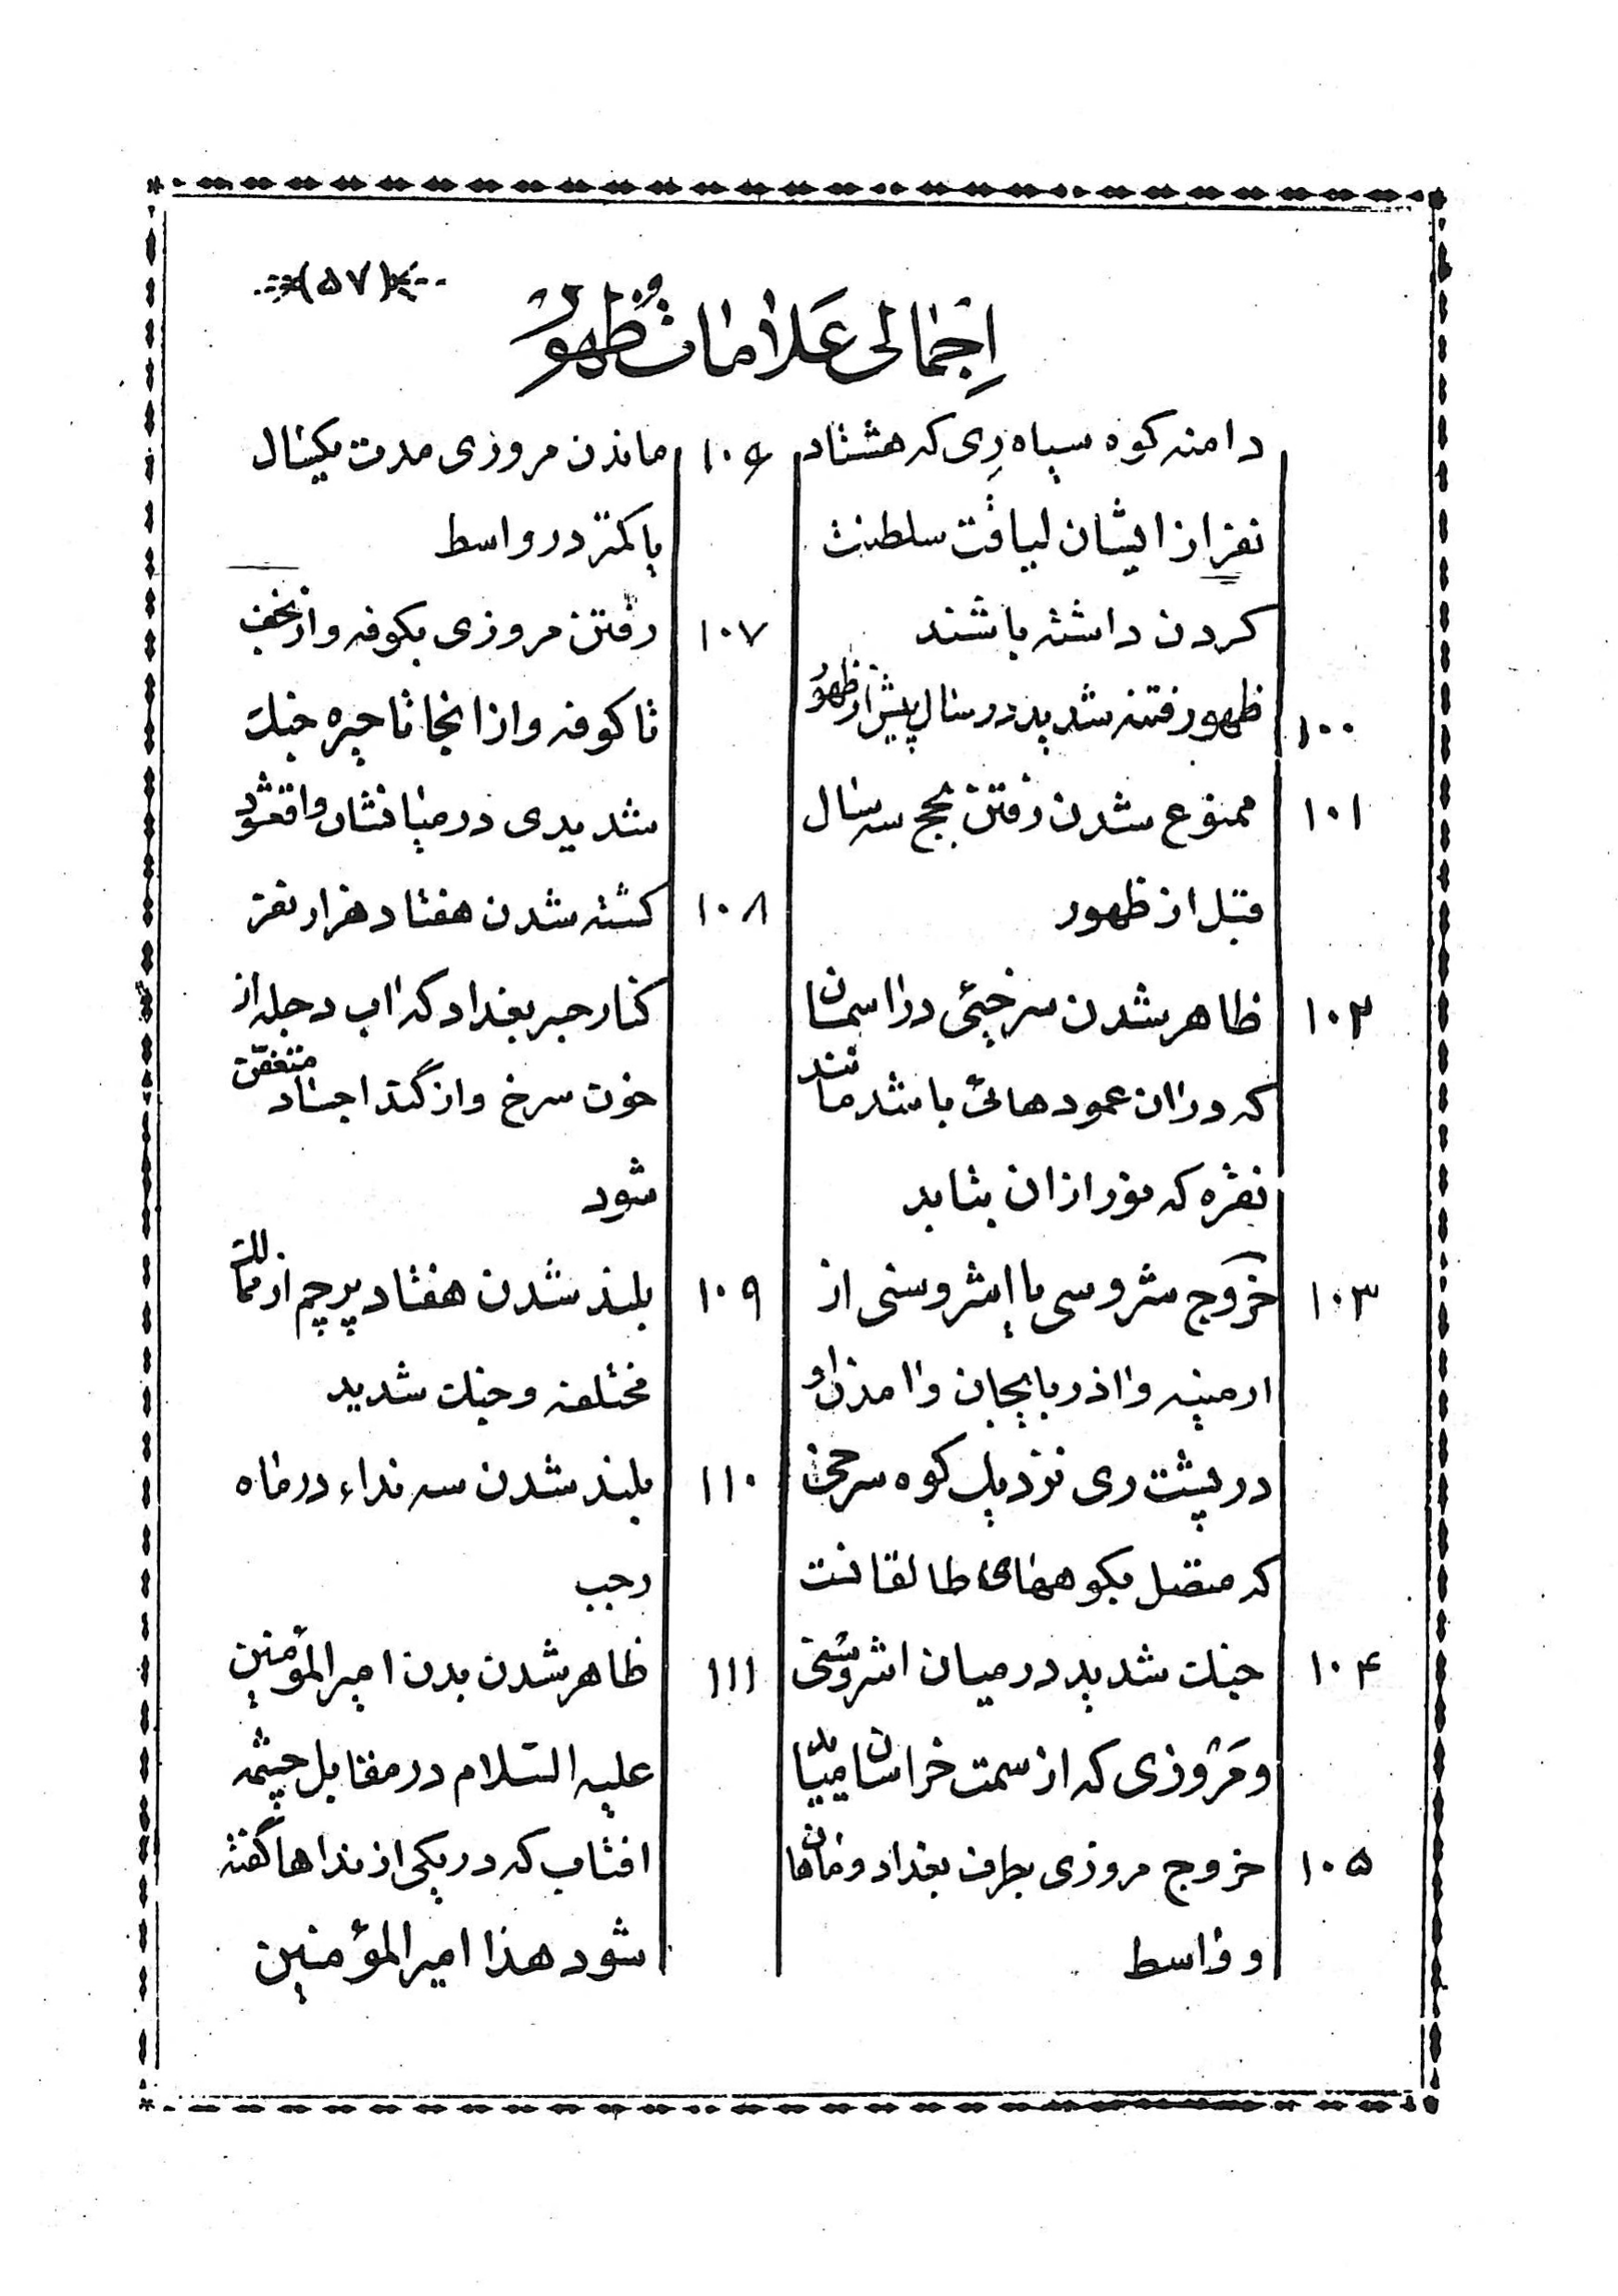 (۵۷)
اجمالی علامات ظهور
دامنه کوه سیاه ری که هشتاد
نفر از ایشان لیاقت سلطنت
کردن داشته باشند
۱۰۰ ظهور فتنه شدید در سال پیش از ظهور
۱۰۱ ممنوع شدن رفتن بحج سه سال
قبل از ظهور
۱۰۲ ظاهر شدن سرخیئی در اسمان
که در ان عمودهائی باشد مانند
نقره که نور از ان بتابد
۱۰۳ خروج شروسی یا اشروسنی از
ارمینیه و اذربایجان و امدن او
در پشت ری نزدیک کوه سرخی
که متصل بکوههای طالقانست
۱۰۴ جنگ شدید در میان اشروسنی
و مروزی که از سمت خراسان میاید
۱۰۵ خروج مروزی بطرف بغداد و ماهان
و واسط
۱۰۶ ماندن مروزی مدت یکسال
یا کمتر در واسط
۱۰۷ رفتن مروزی بکوفه و از نجف
تا کوفه و از انجا تا حیره جنگ
شدیدی در میانشان واقع شود
۱۰۸ کشته شدن هفتاد هزار نفر
کنار جسر بغداد که اب دجله از
خون سرخ و از گند اجساد متعفن
شود
۱۰۹ بلند شدن هفتاد پرچم از ممالک
مختلفه و جنگ شدید
۱۱۰ بلند شدن سه نداء در ماه
رجب
۱۱۱ ظاهر شدن بدن امیر المؤمنین
علیه السلام در مقابل چشمه
افتاب که در یکی از نداها گفته
شود هذا امیر المؤمنین